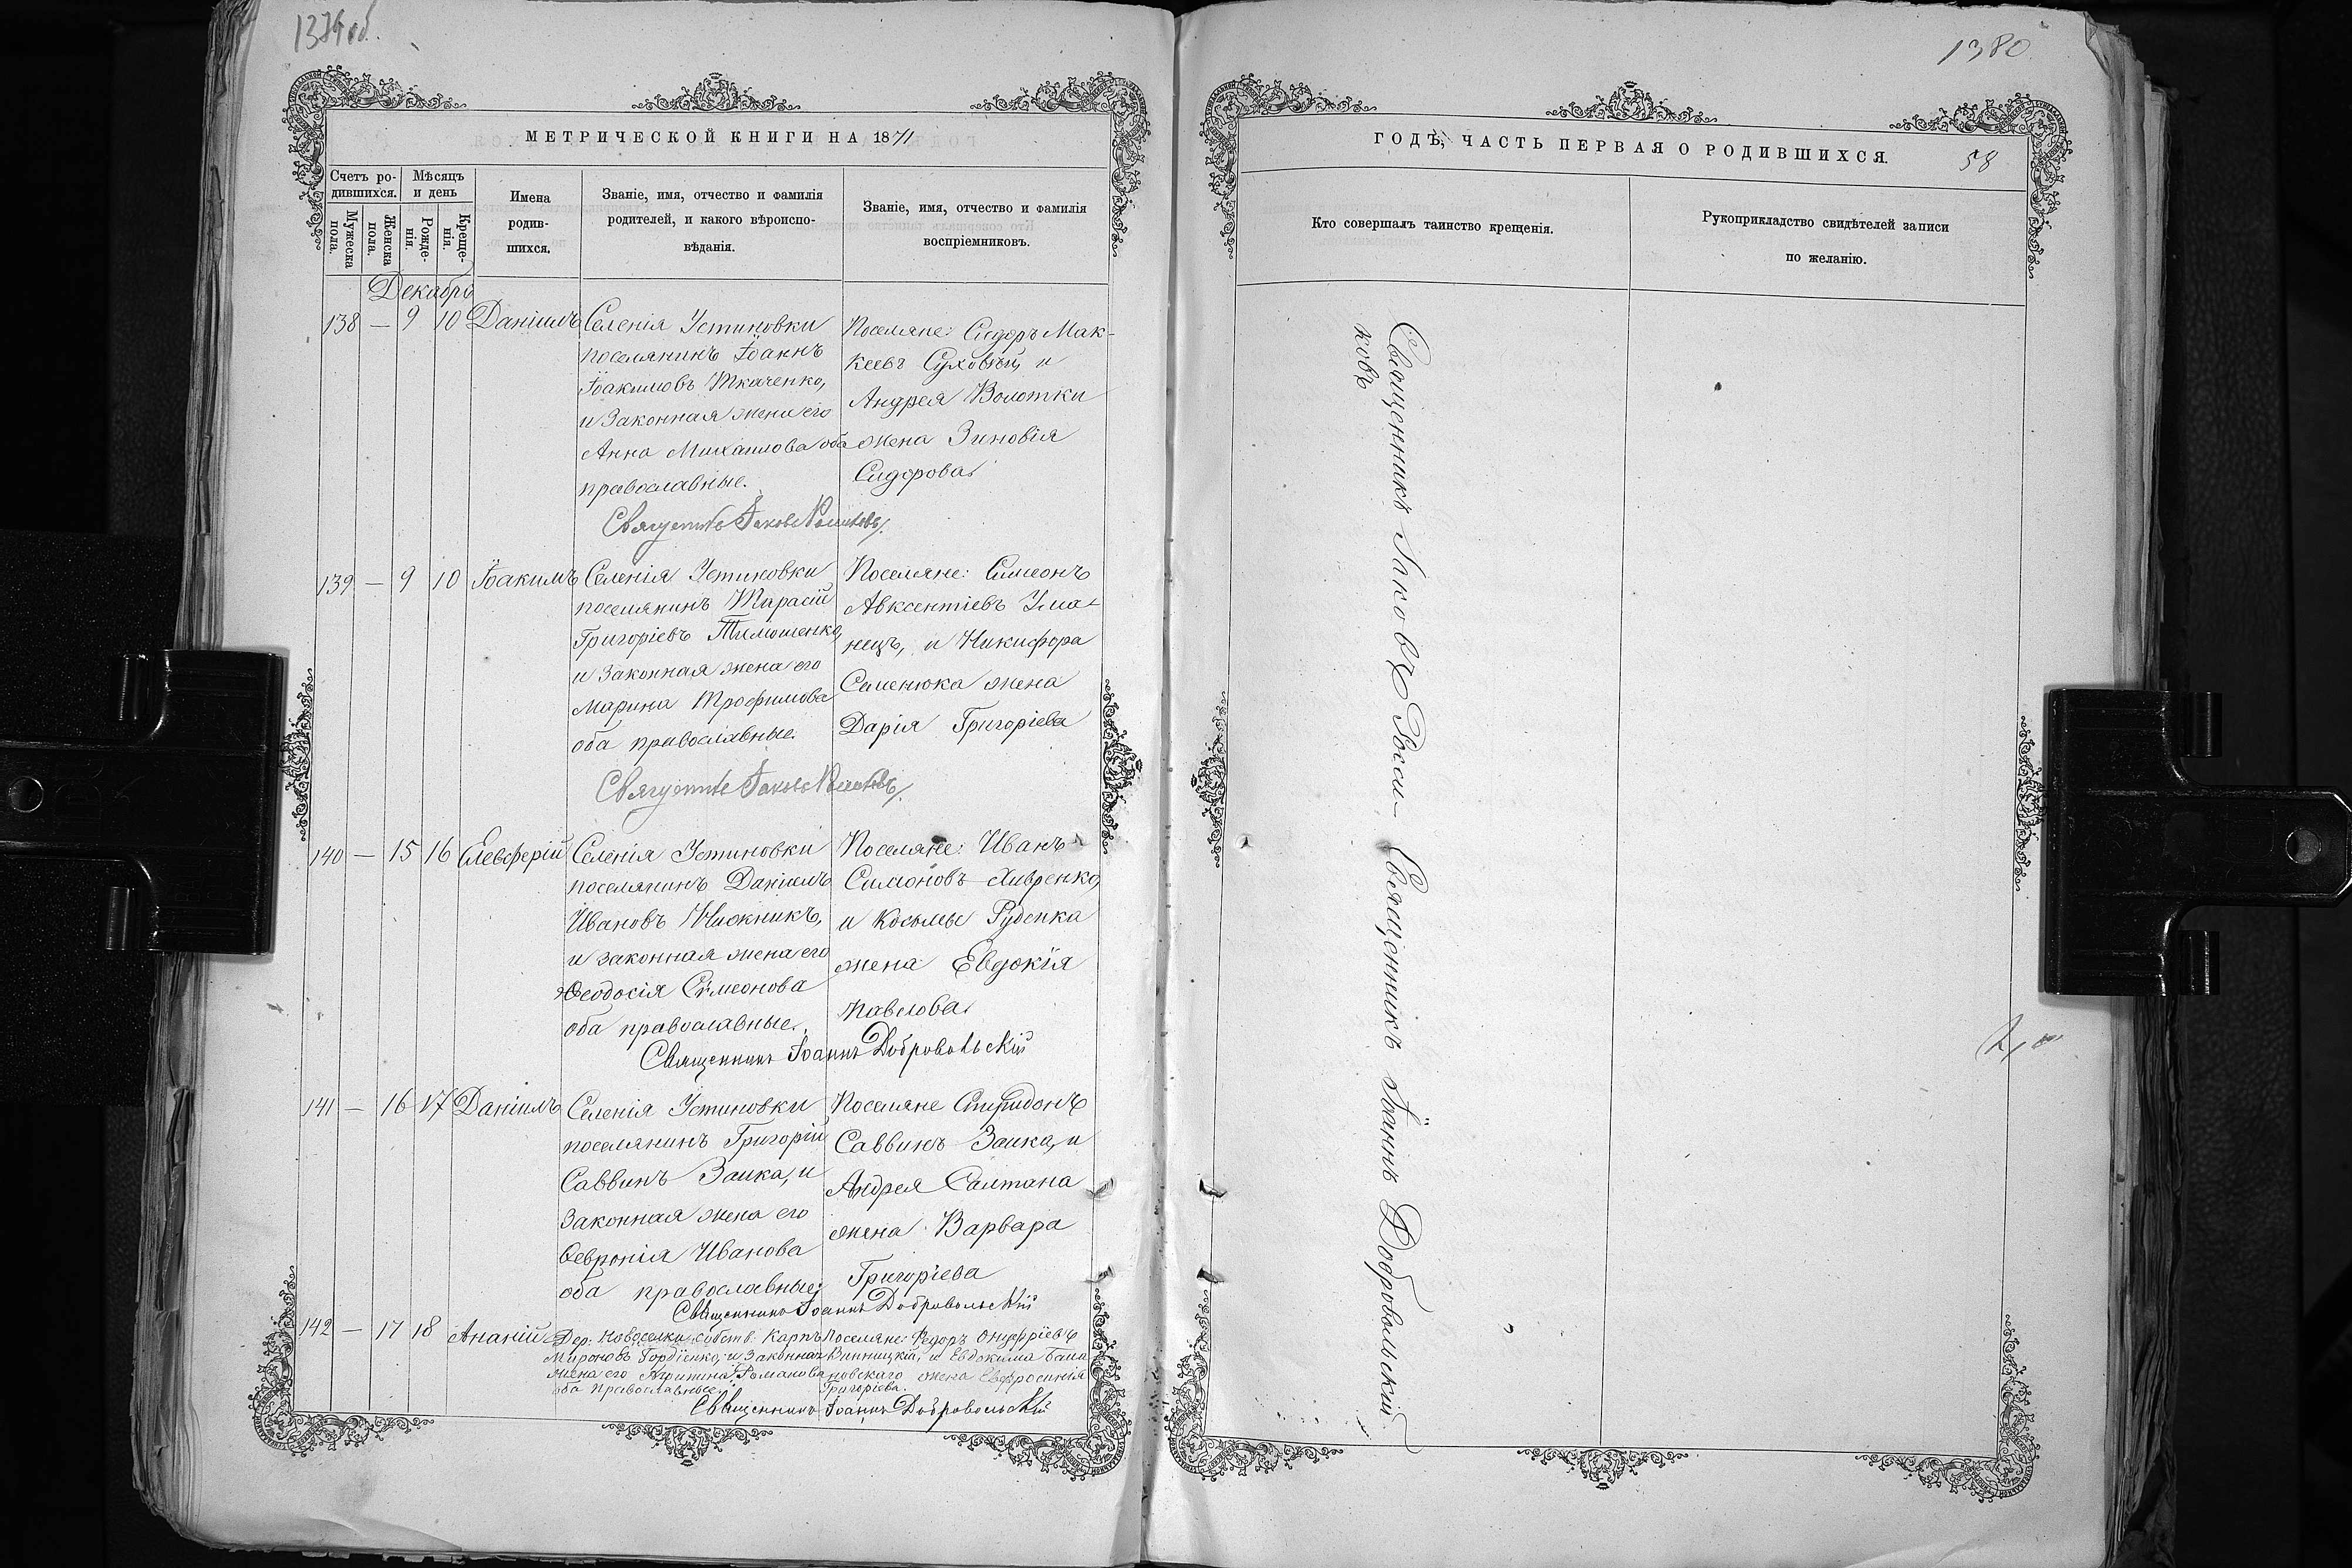 1379 об.
МЕТРИЧЕСКОЙ КНИГИ НА 1871
Счетъ ро-
дившихся.
Мѣсяцъ
и день
Мужеска
пола.
Женска
пола.
Рожде-
нія.
Креще-
нія.
Имена
родив-
шихся.
Званіе, имя, отчество и фамилія
родителей, и какого вѣроиспо-
вѣданія.
Званіе, имя, отчество и фамилія
воспріемниковъ.
Декабрь
138 — 9 10 Даніилъ
Селенія Устиновки
поселянинъ Іоаннъ
Іоакимовъ Ткаченко,
и законная жена его
Анна Михаилова оба
православные.
Поселяне: Сидоръ Мак-
Суховѣй, и
Андрея Волотки
жена Зиновія
Сидорова
139 — 9 10 Іоакимъ
Селенія Устиновки
поселянинъ Тарасій
Григоріевъ Тимошенко,
и законная жена его
Марина Трофимова
оба православные.
Поселяне: Симеонъ
Авксентіевъ Ума-
нецъ, и Никифора
Семенюка жена
Дарія Григоріева
140 — 15 16 Елевферій
Селенія Устиновки
поселянинъ Даніилъ
Ивановъ Нижникъ,
и законная жена его
Ѳеодосія Сѵмеонова
оба православные.
Поселяне: Иванъ
Симоновъ
и Косьмы Руденка
жена Евдокія
Павелова
Священникъ Іоаннъ Добровольскій
141 — 16 17 Даніилъ
Селенія Устиновки
поселянинъ Григорій
Саввинъ Заика, и
законная жена его
Февронія Иванова
оба православные;
Поселяне Спиридонъ
Саввинъ Заика, и
Андрея Салтана
жена Варвара
Григоріева
Священникъ Іоаннъ Добровольскій
142 — 17 18 Ананій
Дер. Новоселки собств. Карпъ
Мироновъ Гордіенко, и законная
жена его Агрипина Романова
оба православные.
Поселяне: Ѳедоръ Онуфріевъ
Винницкій, и Евдокима
жена Евфросинія
Григоріева.
Священникъ Іоаннъ Добровольскій
1380
ГОДЪ, ЧАСТЬ ПЕРВАЯ О РОДИВШИХСЯ.
58
Кто совершалъ таинство крещенія.
Рукоприкладство свидѣтелей записи
по желанію.
Священникъ Іаковъ
ковъ
Священникъ Іоаннъ Добровольскій